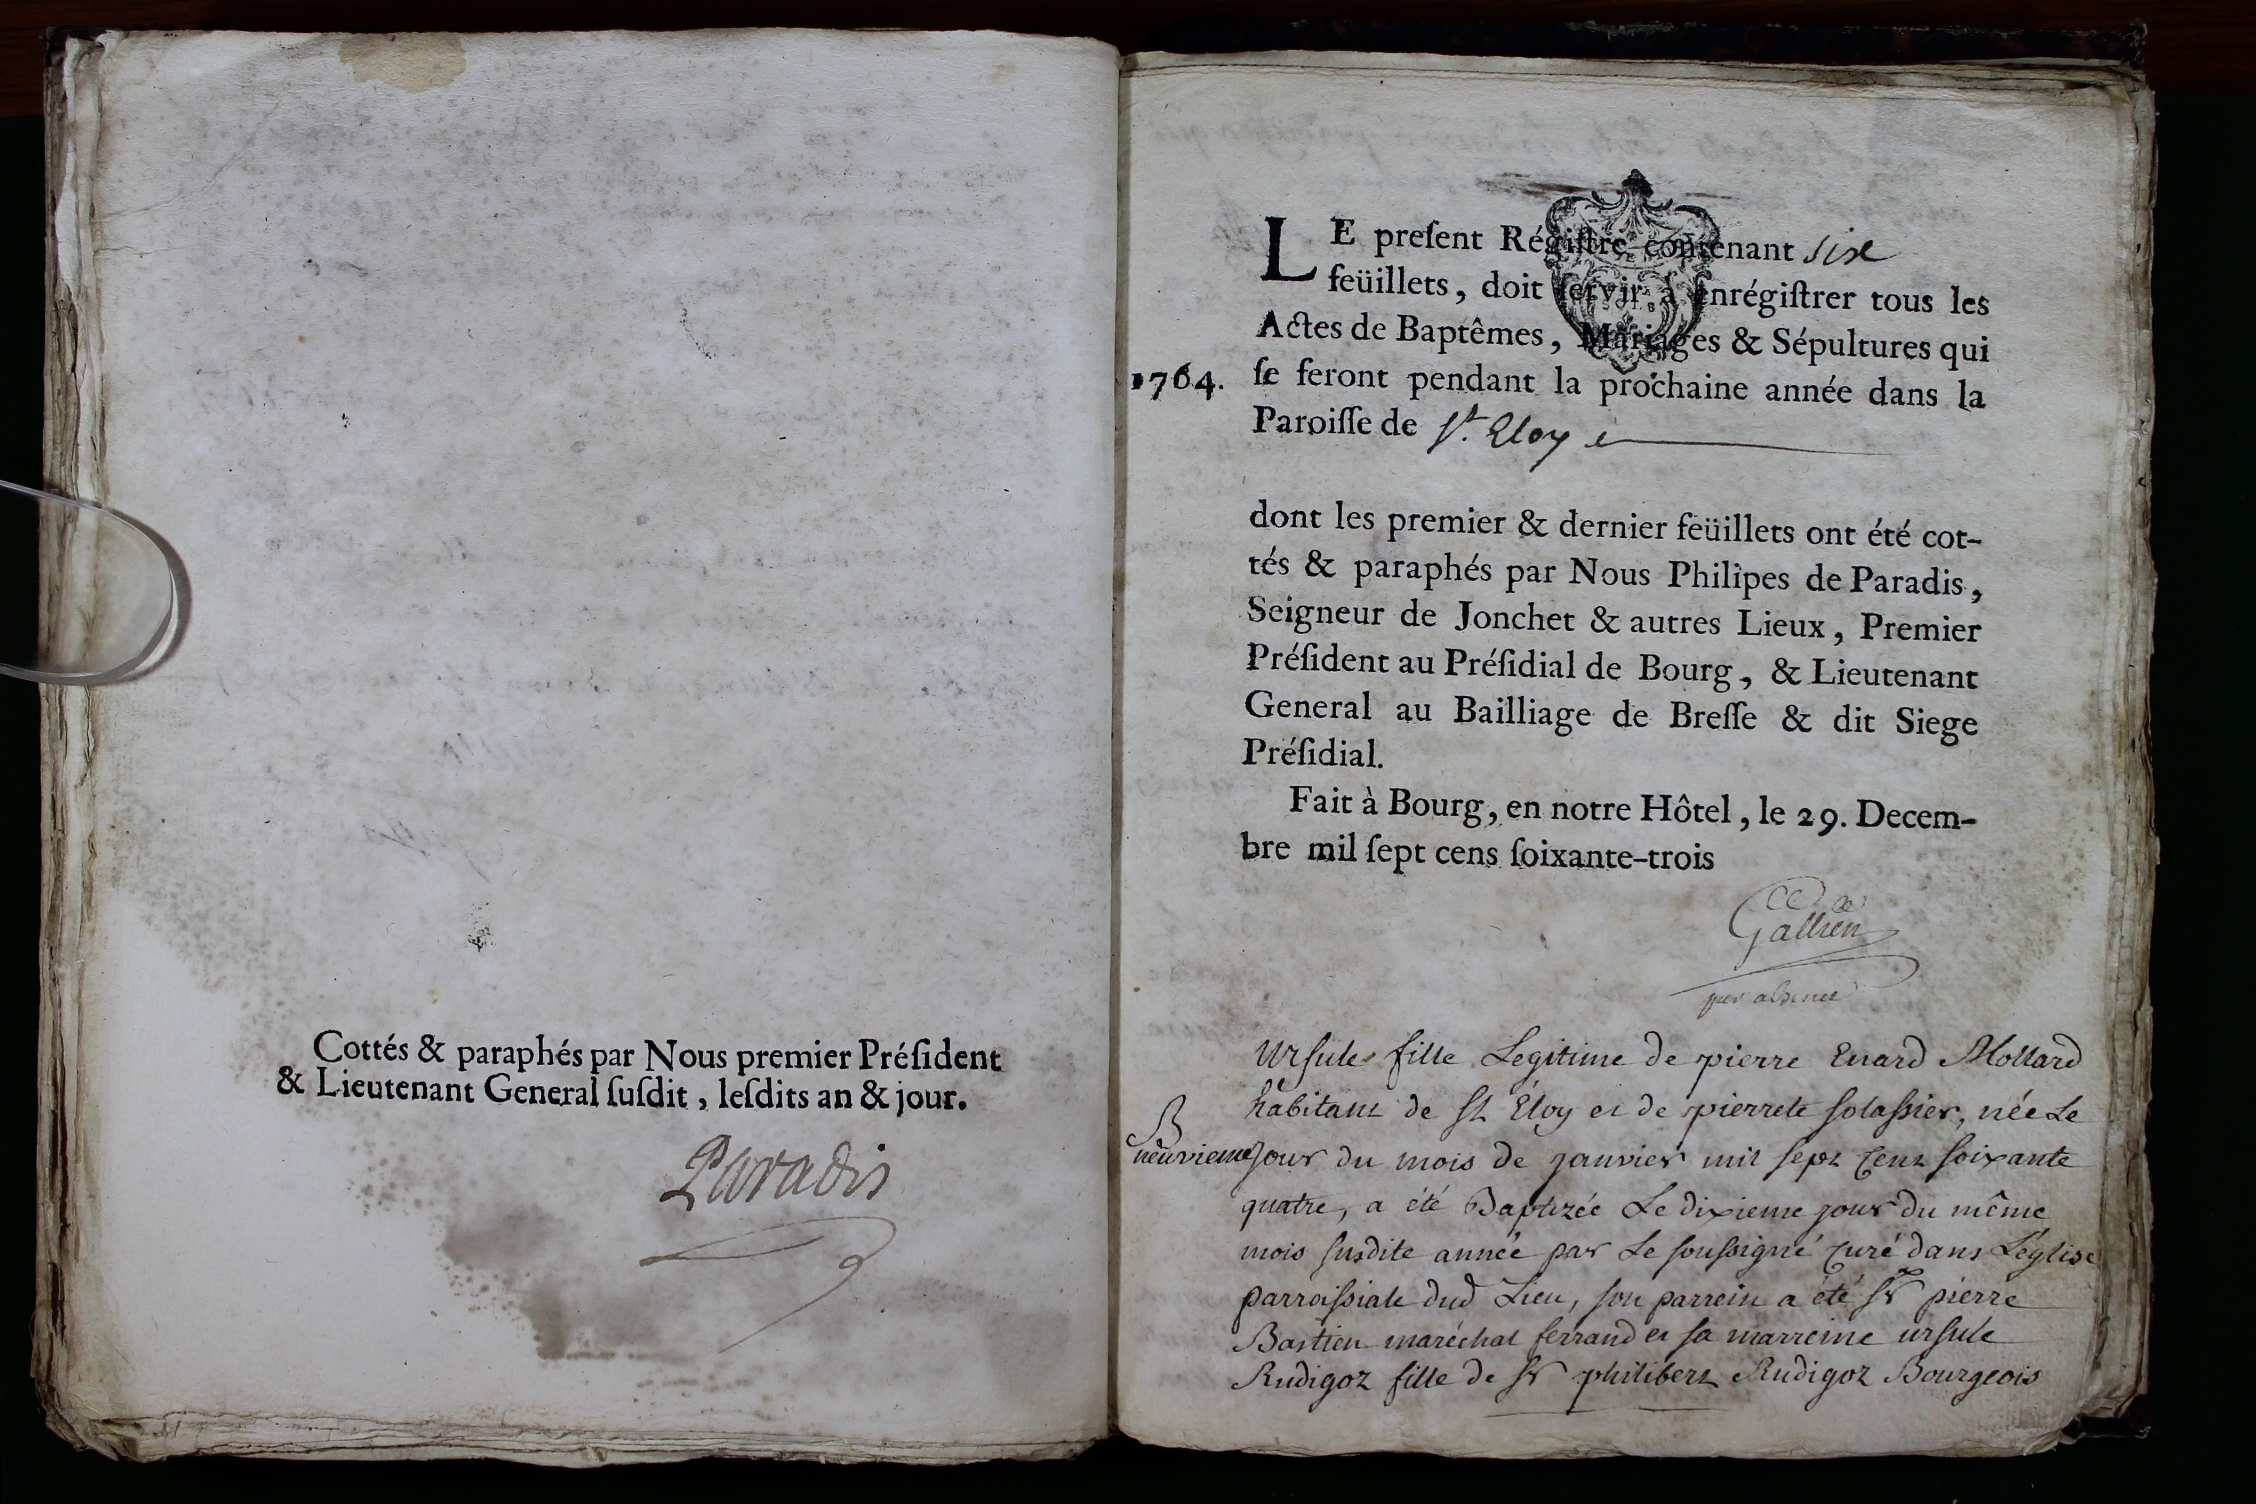 Cottés & paraphés par Nous premier Préſident
& Lieutenant General ſuſdit, leſdits an & jour.
Paradis
LE preſent Régiſtre contenant six
feüillets, doit ſervir à enrégiſtrer tous les
Actes de Baptêmes, Mariages & Sépultures qui
1764. ſe feront pendant la prochaine année dans la
Paroiſſe de St. Eloy
dont les premier & dernier feüillets ont été cot-
tés & paraphés par Nous Philipes de Paradis,
Seigneur de Jonchet & autres Lieux, Premier
Préſident au Préſidial de Bourg, & Lieutenant
General au Bailliage de Breſſe & dit Siege
Préſidial.
Fait à Bourg, en notre Hôtel, le 29. Decem-
bre mil ſept cens ſoixante-trois
Gallien
Ursule fille Legitime de pierre Evrard Mollard
habitant de St Éloy et de pierrete solassier, née Le
B
neuvieme jour du mois de janvier mil sept cent soixante
quatre, a été Baptizée Le dixieme jour du même
mois susdite année par Le soussigné curé dans L'église
parroissiale dud Lieu, son parrein a été sr pierre
Bastien maréchal ferrand et sa marreine ursule
Rudigoz fille de sr philibert Rudigoz Bourgeois